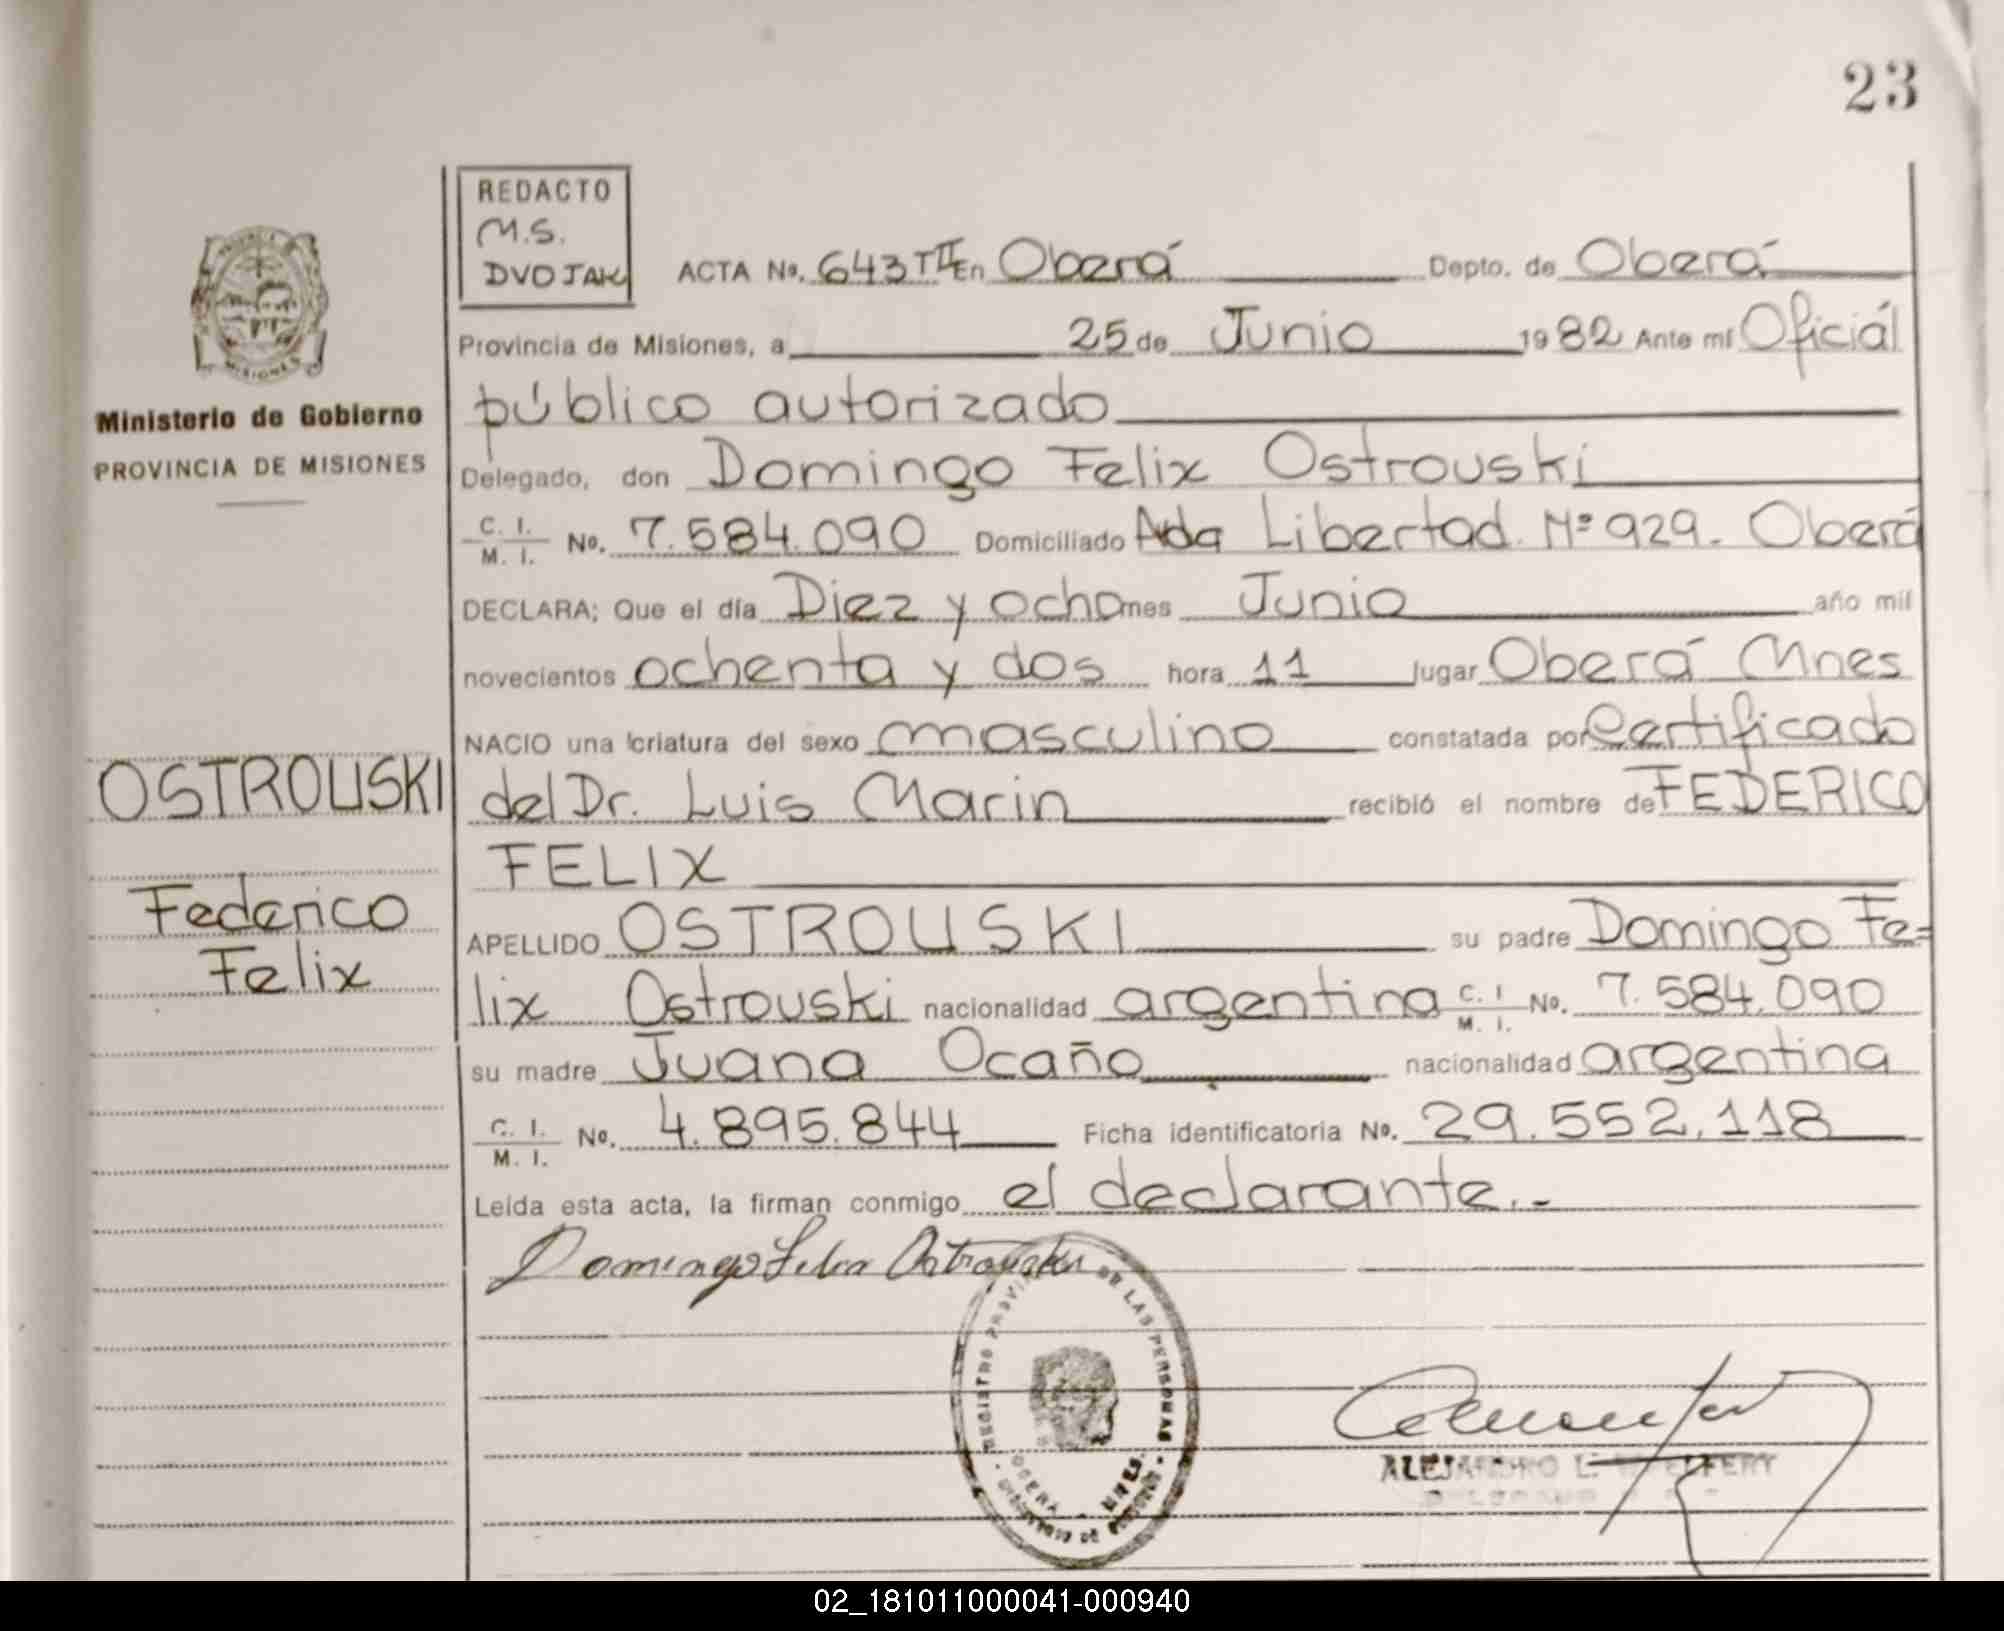 23
REDACTO
M.S.
DVOJAK
ACTA No. 643 T II En Oberá Depto. de Oberá
Provincia de Misiones, a 25 de Junio 1982 Ante mí Oficiál
público autorizado
Ministerio de Gobierno
PROVINCIA DE MISIONES
Delegado, don Domingo Felix Ostrouski
C. I. M. I. No. 7.584.090 Domiciliado Avda Libertad. Nº 929. Oberá
DECLARA; Que el día Diez y ocho mes Junio año mil
novecientos ochenta y dos hora 11 lugar Oberá Mnes
NACIO una criatura del sexo masculino constatada por Certificado
OSTROUSKI
del Dr. Luis Marin recibió el nombre de FEDERICO
FELIX
Federico
Felix
APELLIDO OSTROUSKI su padre Domingo Fe=
lix Ostrouski nacionalidad argentina C. I M. I. No. 7.584.090
su madre Juana Ocaño nacionalidad argentina
C. I. M. I. No. 4.895.844 Ficha identificatoria No. 29.552.118
Leída esta acta, la firman conmigo el declarante.-
Domingo Felix Ostrouski
REGISTRO DE LAS PERSONAS
OBERA MNES.
ALEJANDRO L.
02_181011000041-000940